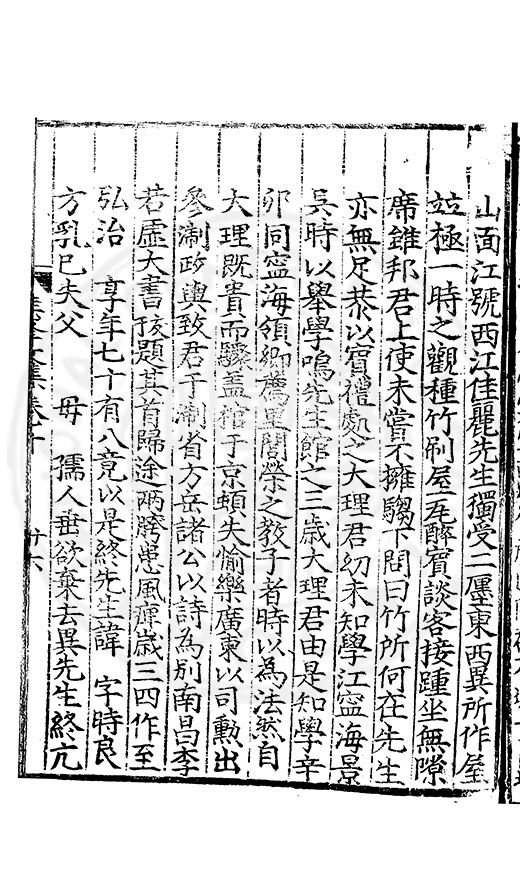 山面江號西江佳麗先生獨受二廛東西異所作屋
竝極一時之觀種竹刷屋一在醉賓談客接踵坐無隙
席雖邦君上使未嘗不擁騶下問曰竹所何在先生
亦無足恭以賓禮處之大理君幼未知學江寍海景
吳時以舉學鳴先生館之三歲大理君由是知學辛
卯同寍海領鄉薦里閭榮之教子者時以為法然自
大理既貴而驟蓋棺于京頓失愉樂廣東以司勳出
參浙政輿致君于浙省方岳諸公以詩為別南昌李
若虛大書按題其首歸途兩髈患風痺歲三四作至
弘治 享年七十有八竟以是終先生諱 字時良
方乳已失父 母 孺人垂欲棄去異先生終亢
集卷十
廿六